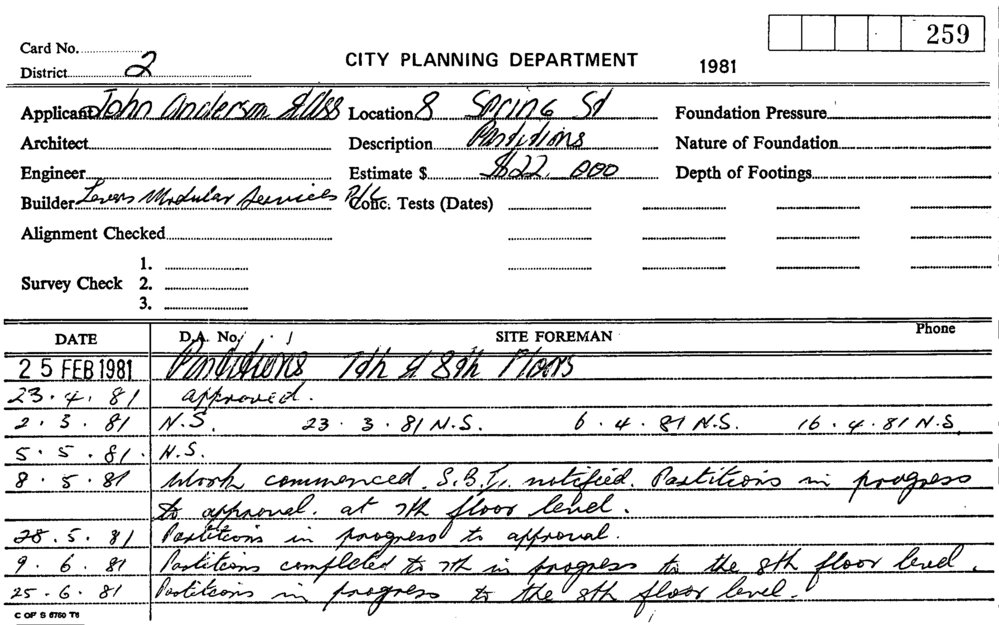 259
Card No.
CITY PLANNING DEPARTMENT 1981
District 2
Applicant John Anderson & Ass Location 8 Spring St Foundation Pressure
Architect Description Partitions Nature of Foundation
Engineer Estimate $ $22.000 Depth of Footings
Builder Levers Modular Services P/L. Conc. Tests (Dates)
Alignment Checked
1.
Survey Check 2.
3.
DATE D.A. No. SITE FOREMAN Phone
25 FEB 1981 Partitions 7th & 8th Floors
23.4.81 approved.
2.3.81 N.S. 23.3.81 N.S. 6.4.81 N.S. 16.4.81 N.S.
5.5.81. N.S.
8.5.81 Work commenced. S.B.I. notified. Partitions in progress
to approval. at 7th floor level.
28.5.81 Partitions in progress to approval.
9.6.81 Partitions completed to 7th in progress to the 8th floor level.
25.6.81 Partitions in progress to the 8th floor level.
C OF S 6760 T6